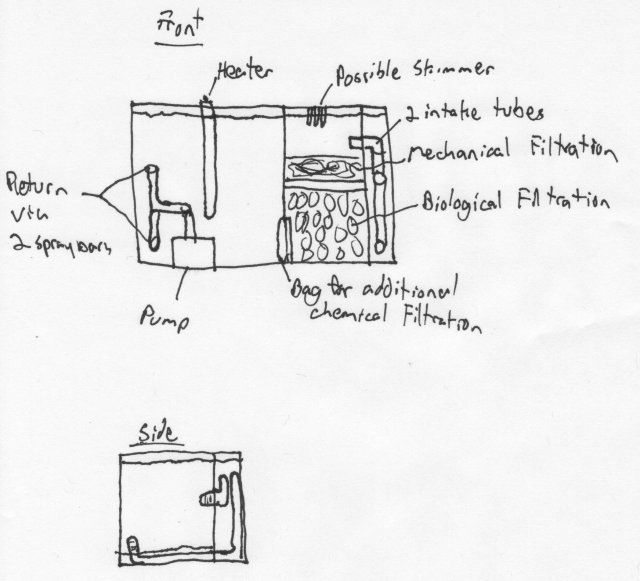 Front
Heater
Possible Skimmer
2 intake tubes
Mechanical Filtration
Biological Filtration
Return
via
2 spraybars
Pump
Bag for additional
chemical Filtration
Side